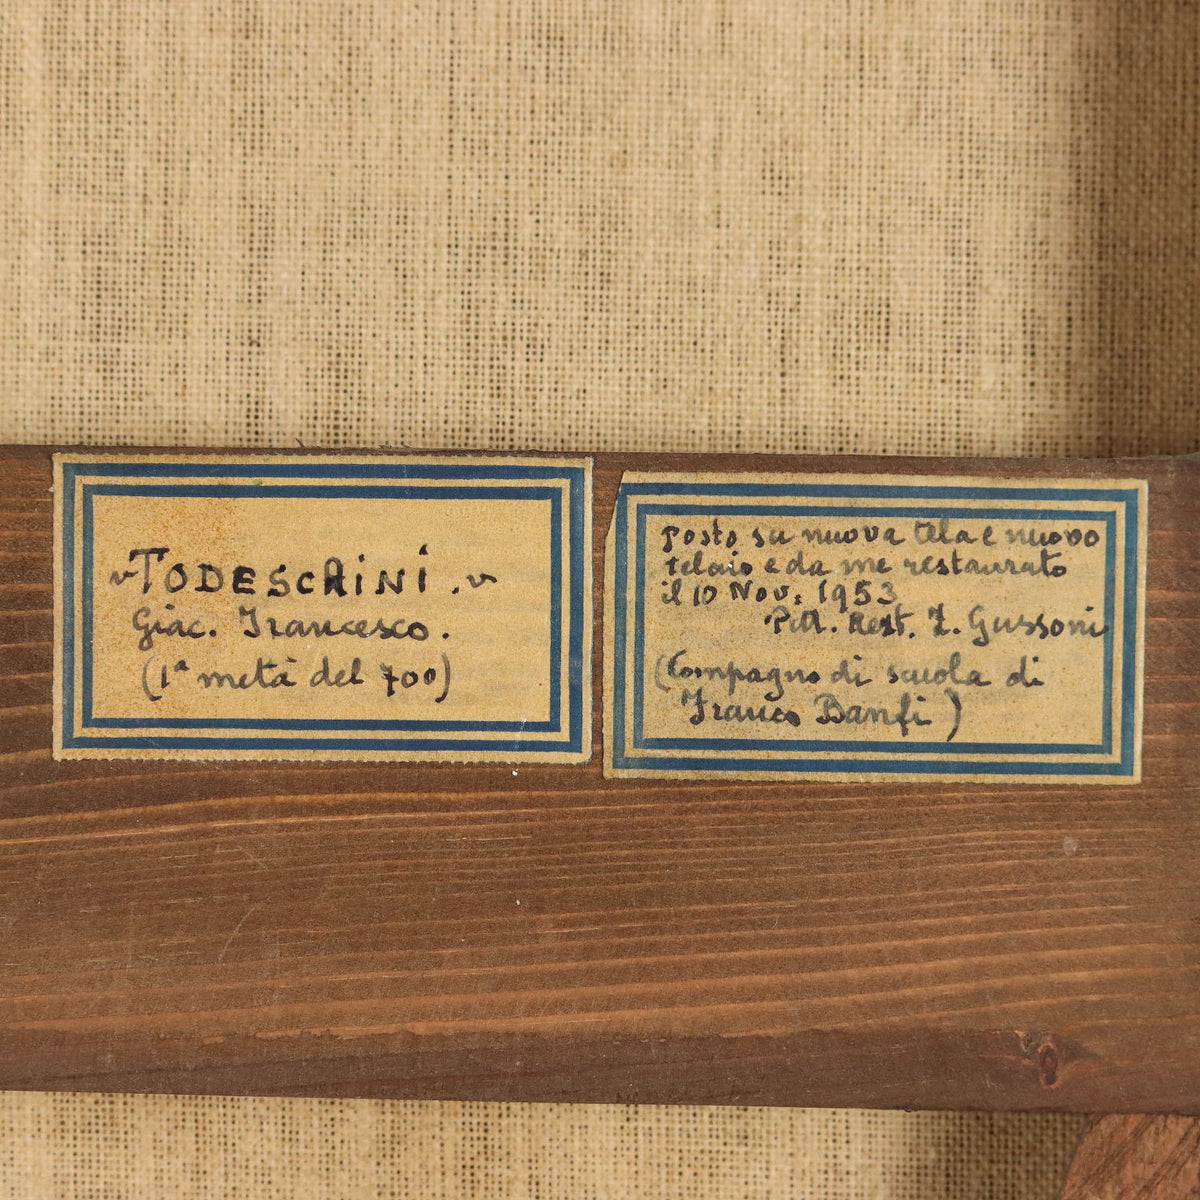 "TODESCHINI."
Giac. Francesco.
(1ª metà del 700)
posto su nuova tela e nuovo
telaio e da me restaurato
il 10 Nov. 1953
Pitt. Rest. Z. Gussoni
(Compagno di scuola di
Franco Banfi)